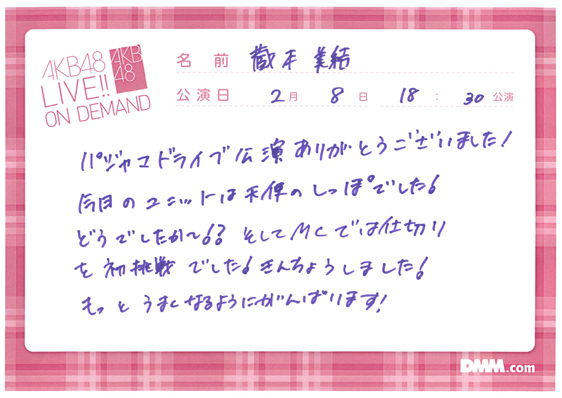 AKB48
LIVE!!
ON DEMAND
AKB
48
名前 蔵本美結
公演日 2月 8日 18:30公演
パジャマドライブ公演ありがとうございました!
今日のユニットは天使のしっぽでした!
どうでしたか〜!? そしてMCでは仕切り
を初挑戦でした!きんちょうしました!
もっとうまくなるようにがんばります!
DMM.com